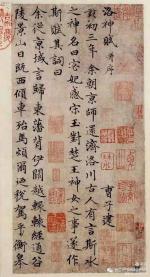 洛神賦 并序 曹子建
黃初三年余朝京師還濟洛川古人有言斯水
之神名曰宓妃感宋玉對楚王神女之事遂作
斯賦其詞曰
余從京域言歸東藩背伊闕越轘轅經通谷
陵景山日既西傾車殆馬煩爾迺稅駕乎衡皋